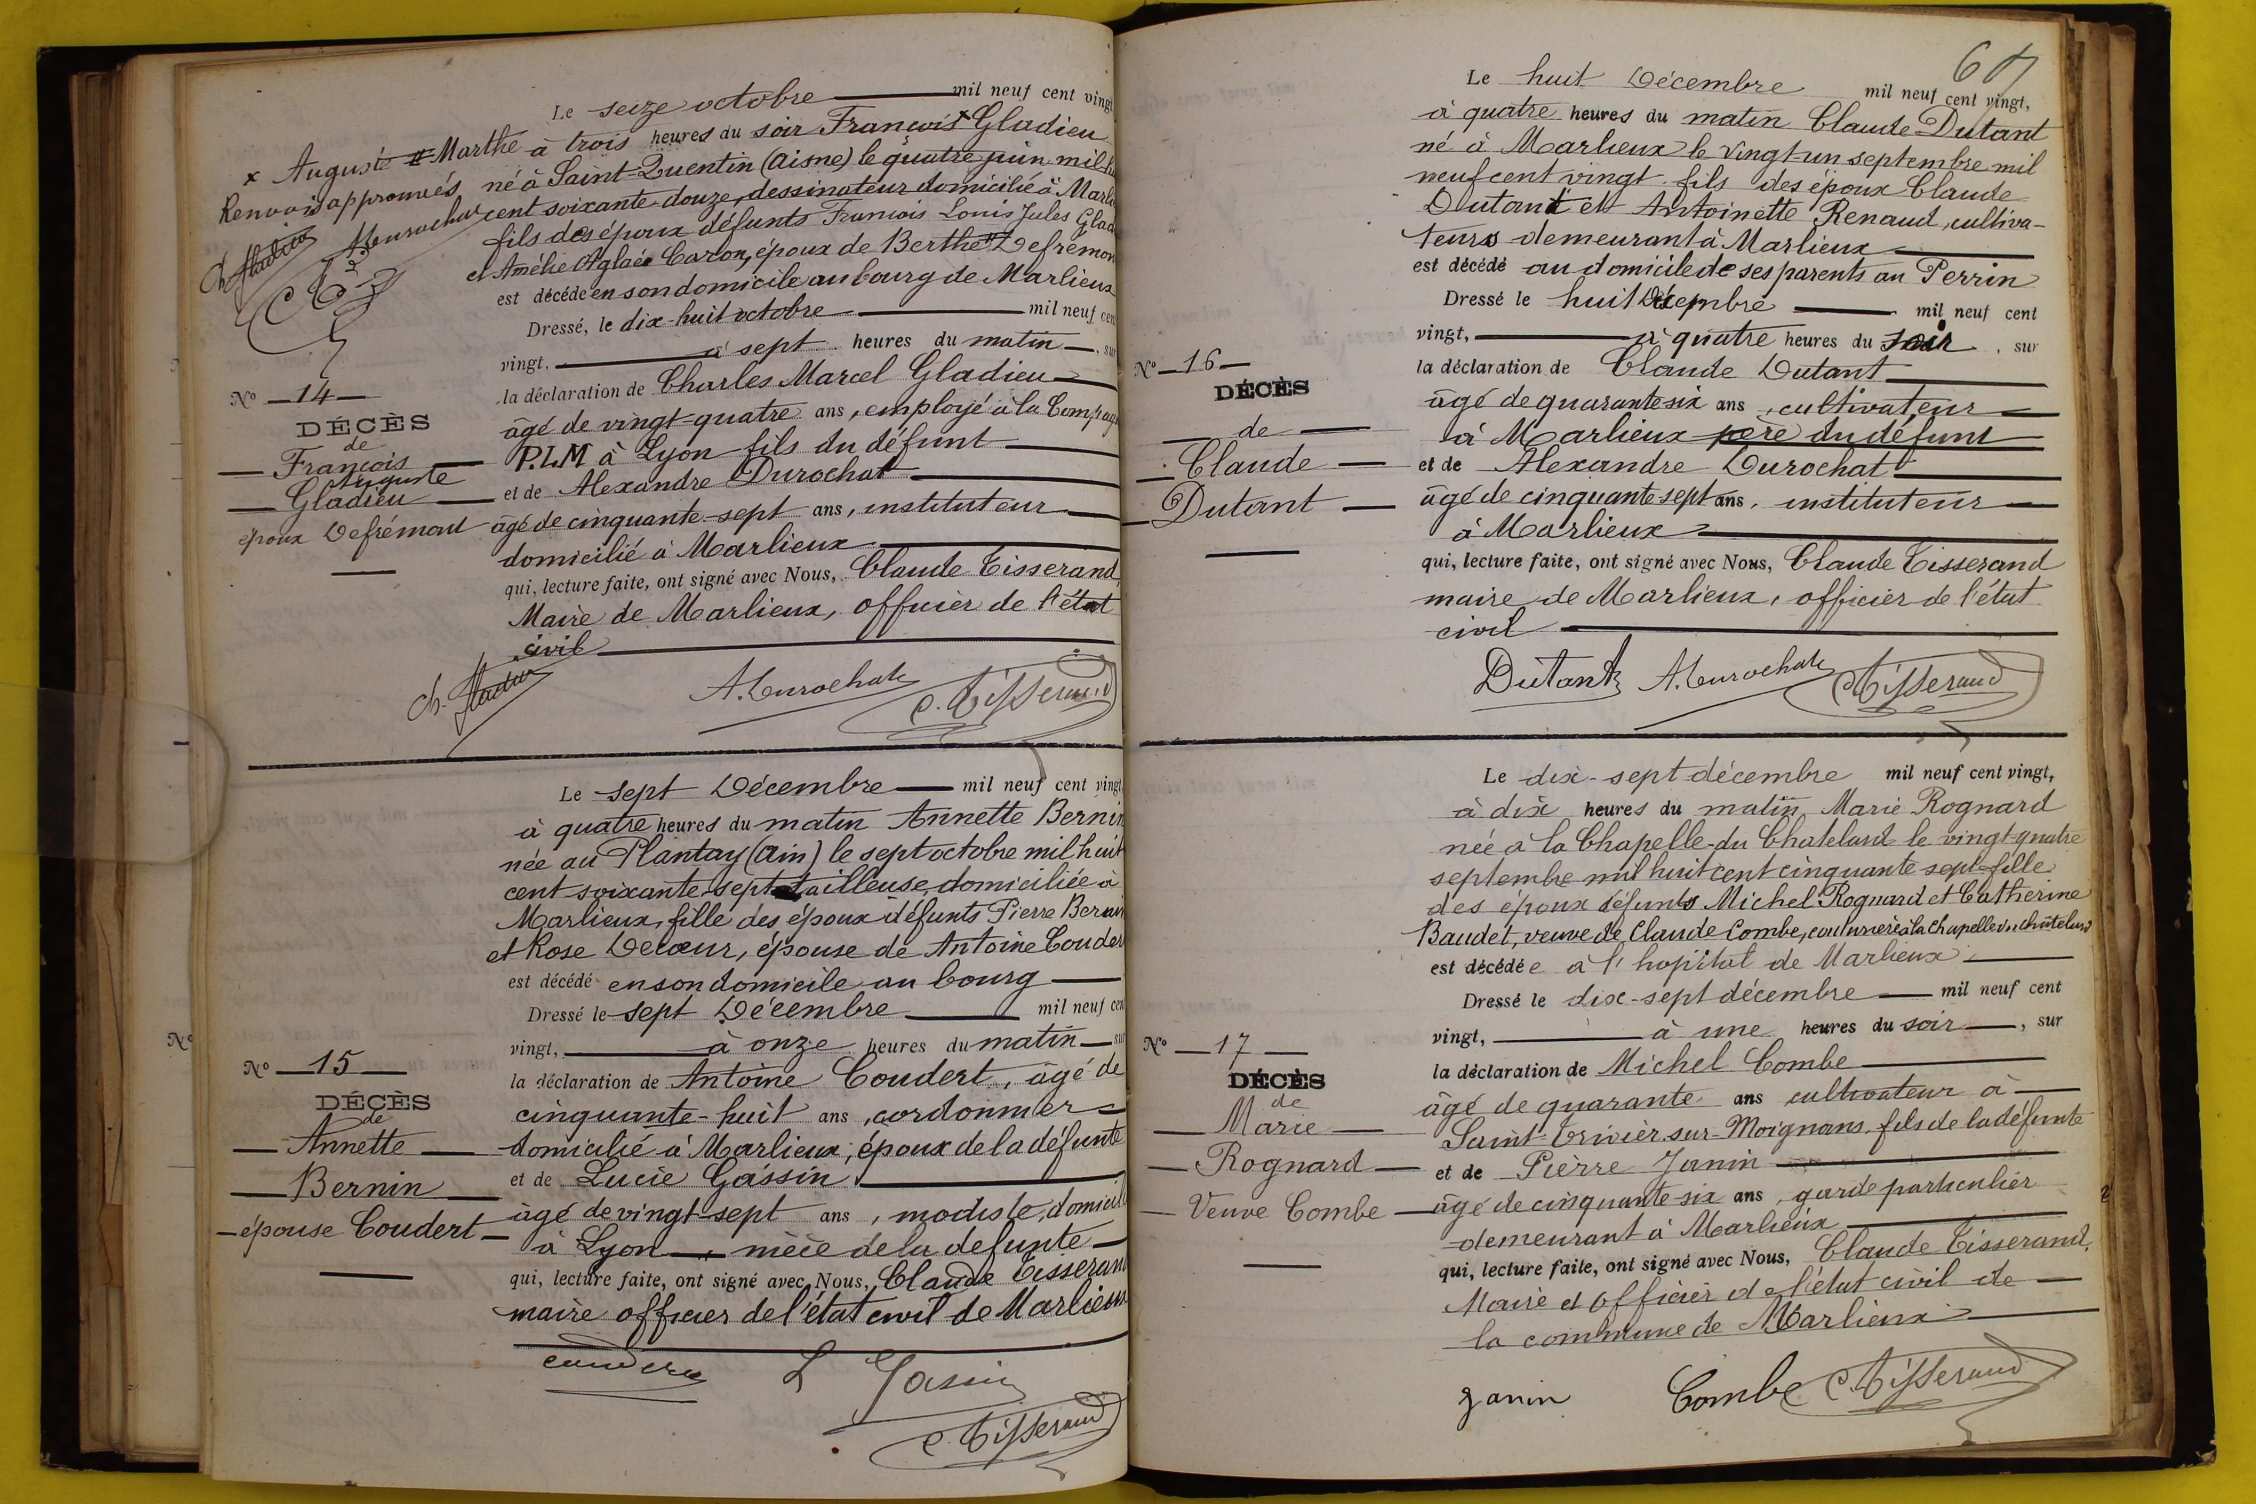 Le seize octobre mil neuf cent vingt
x Auguste # Marthe
Renvois approuvés
Ch. Gladieu A. Durochat
à trois heures du soir François x Gladieu
né à Saint-Quentin (Aisne) le quatre juin mil h
cent soixante-douze, dessinateur domicilié à Marli
fils des époux défunts François Louis Jules Glad
et Amélie Aglaée Caron, époux de Berthe # Defrémon
est décédé en son domicile au bourg de Marlieux
Dressé, le dix-huit octobre mil neuf cen
vingt, à sept heures du matin, sur
la déclaration de Charles Marcel Gladieu
âgé de vingt-quatre ans, employé à la Compag
P.L.M à Lyon fils du défunt
et de Alexandre Durochat
âgé de cinquante-sept ans, instituteur
domicilié à Marlieux
qui, lecture faite, ont signé avec Nous, Claude Tisserand,
Maire de Marlieux, officier de l'état
civil
Ch. Gladieu A. Durochat C. Tisserand
No 14
DÉCÈS
de
François
Auguste
Gladieu
époux Defrémont
Le sept Décembre mil neuf cent vingt
à quatre heures du matin Annette Bernin
née au Plantay (Ain) le sept octobre mil huit
cent soixante-sept tailleuse, domiciliée à
Marlieux, fille des époux défunts Pierre Bernin
et Rose Decœur, épouse de Antoine Couder
est décédé en son domicile au bourg
Dressé le sept Décembre mil neuf cen
vingt, à onze heures du matin sur
la déclaration de Antoine Coudert, âgé de
cinquante-huit ans, cordonnier
domicilié à Marlieux, époux de la défunte
et de Lucie Gassin
âgé de vingt-sept ans, modiste, domicil
à Lyon, nièce de la défunte
qui, lecture faite, ont signé avec Nous, Claude Tisseran
maire officier de l'état civil de Marlieux
coudert L Gassin
C. Tisserand
No
No 15
DÉCÈS
de
Annette
Bernin
épouse Coudert
Le huit Décembre mil neuf cent vingt,
à quatre heures du matin Claude Dutant
né à Marlieux le vingt-un septembre mil
neuf cent vingt fils des époux Claude
Dutant et Antoinette Renaud, cultiva-
teurs demeurant à Marlieux
est décédé au domicile de ses parents au Perrin
Dressé le huit Décembre mil neuf cent
vingt, à quatre heures du soir, sur
la déclaration de Claude Dutant
âgé de quarante six ans, cultivateur
à Marlieux père du défunt
et de Alexandre Durochat
âgé de cinquante sept ans, instituteur
à Marlieux
qui, lecture faite, ont signé avec Nous, Claude Tisserand
maire de Marlieux, officier de l'état
civil
Dutant A. Durochat C. Tisserand
No 16
DÉCÈS
de
Claude
Dutant
Le dix-sept décembre mil neuf cent vingt,
à dix heures du matin Marie Rognard
née à la Chapelle-du Chatelard le vingt-quatre
septembre mil huit cent cinquante sept fille
des époux défunts Michel Rognard et Catherine
Baudet, veuve de Claude Combe, couturière à la Chapelle du châtelard
est décédée à l'hopital de Marlieux
Dressé le dix-sept décembre mil neuf cent
vingt, à une heures du soir, sur
la déclaration de Michel Combe
âgé de quarante ans cultivateur à
Saint-Trivier-sur-Moignans fils de la défunte
et de Pierre Janin
âgé de cinquante-six ans, garde particulier
demeurant à Marlieux
qui, lecture faite, ont signé avec Nous, Claude Tisserand,
Maire et officier de l'état civil de
la commune de Marlieux
Janin Combe C. Tisserand
No 17
DÉCÈS
de
Marie
Rognard
Veuve Combe